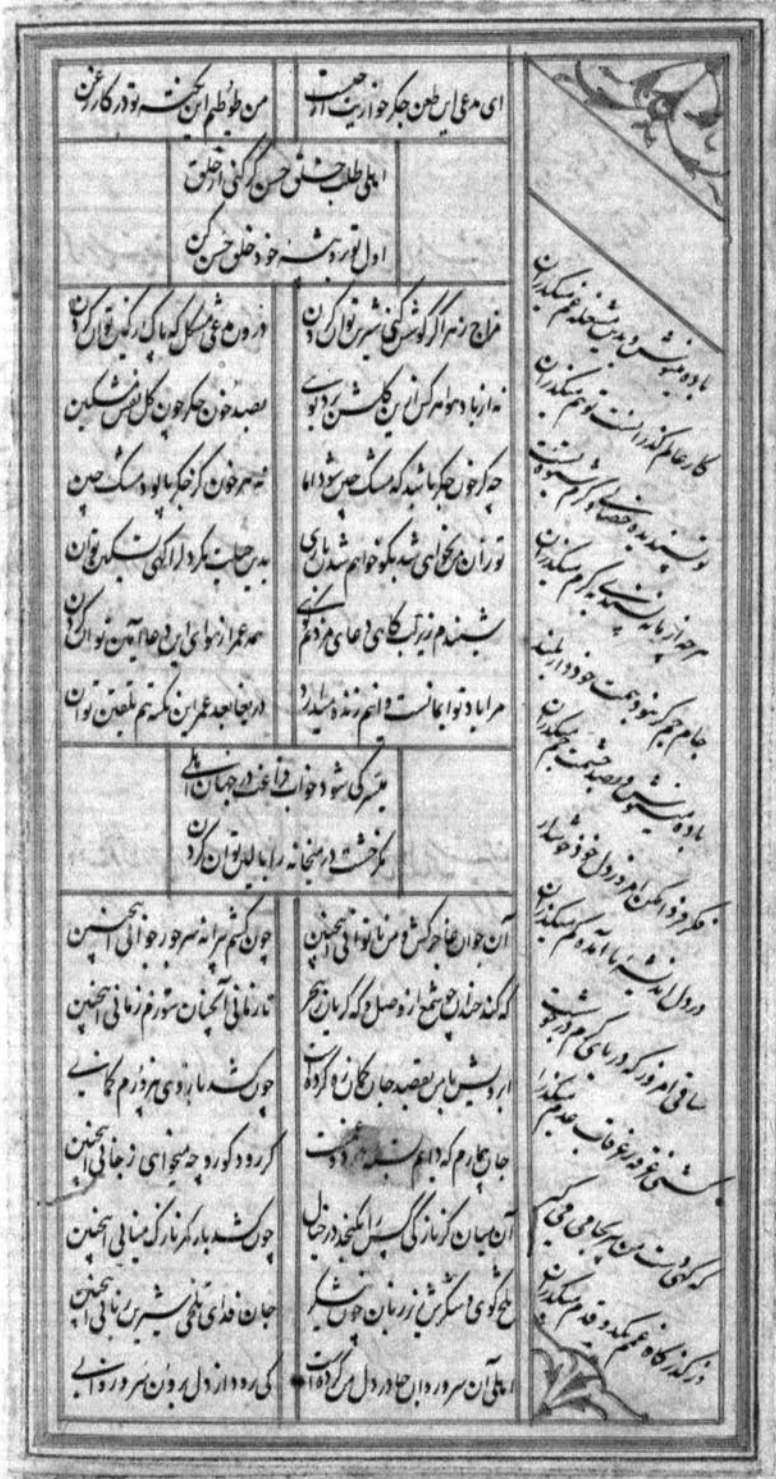 ای مدعی این طعن جگرخواریت از چیست
من طوطیم این نکته تو در کار زغن کن
اهلی طلب خلق حسن گر کنی از خلق
اول تو برو شیوه خود خلق حسن کن
مزاج زهر اگر کوشش کنی شیرین توان کردن
درون مدعی مشکل که پاک از کین توان کردن
نه از باد هوا هرکس ازین گلشن برد بویی
بصد خون جگر چون گل نفس مشکین
چه گر خون جگر باشد که مشک چین شود اما
نه هر خون کز جگر پالود مشک چین
تو زان من نخواهی شد بگو خواهم شدن باری
بدین حیلت مگر دل را کهی تسکین توان
شنیدم زیر لب گاهی دعای مردنم گویی
همه عمر از هوای این دعا آمین توان کردن
مرا یاد تو ایمانست و اینم زنده میدارد
در بعد عمر این نکته هم تلقین توان
میسر کی شود خواب فراغت در جهان اهلی
مگر خشت در میخانه را بالین توان کردن
آن جوان عاجزکش و من ناتوانی اینچنین
چون کشم پیرانه سر جور جوانی اینچنین
گه کند خندان چو شمع از وصل و گه گریان ز هجر
تا زمانی آنچنان سوزم زمانی اینچنین
ابرویش با من بقصد جان کمان زه کرده است
چون کشد بازوی هر زورم کمانی
جان بیمارم که دایم
گر رود گو رو چه میخواهی ز جانی اینچنین
آن میان کز نازکی کس را نگنجد در خیال
چون کشد بار کمر نازک میانی اینچنین
تلخ گوی و شکرش زیر زبان چون نیشکر
جان فدای تلخی شیرین زبانی اینچنین
اهلی آن سرو روان جا در دل من کرده است
کی رود از دل برون سرو روانی
باده مینوش و بدین شغله غم میگذران
کار عالم گذرانست تو هم میگذران
هرچه از ما نپسندی به کرم میگذران
جام جم گر نبود همت خود دار بلند
باده مینوش و بصد حشمت جم میگذران
فکر فردا مکن امروز دل خود خوش دار
در دل اندیشه نا آمده کم میگذران
ساقی امروز که دریای کرم در جوش است
کشتی غرقه ز غرقاب عدم میگذران
که گهی دست من پیر بجامی می گیر
در گذرگاه غمم یکدو قدم میگذران